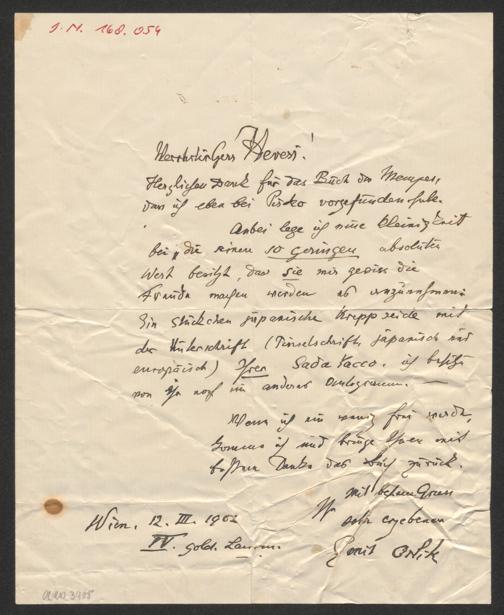 J.N. 168.054
Verehrter Herr Hevesi!
Herzlichen Dank für das Buch des Mempes,
das ich eben bei Pisko vorgefunden habe.
Anbei lege ich eine Kleinigkeit
bei, die einen so geringen absoluten
Wert besitzt, das sie mir gewiss die
Freude machen werden es anzunehmen:
Ein Stückchen japanische Kreppseide mit
der Unterschrift (Pinselschrift, japanisch und
europäisch) Ihrer Sada Yacco. ich besitze
von ihr noch ein anderes Autogramm. —
Wenn ich ein wenig frei werde,
komme ich und bringe Ihnen mit
bestem Danke das Buch zurück.
Mit bestem Gruss
Ihr
sehr ergebener
Emil Orlik
Wien, 12. III. 1902
IV. gold. Lamm.